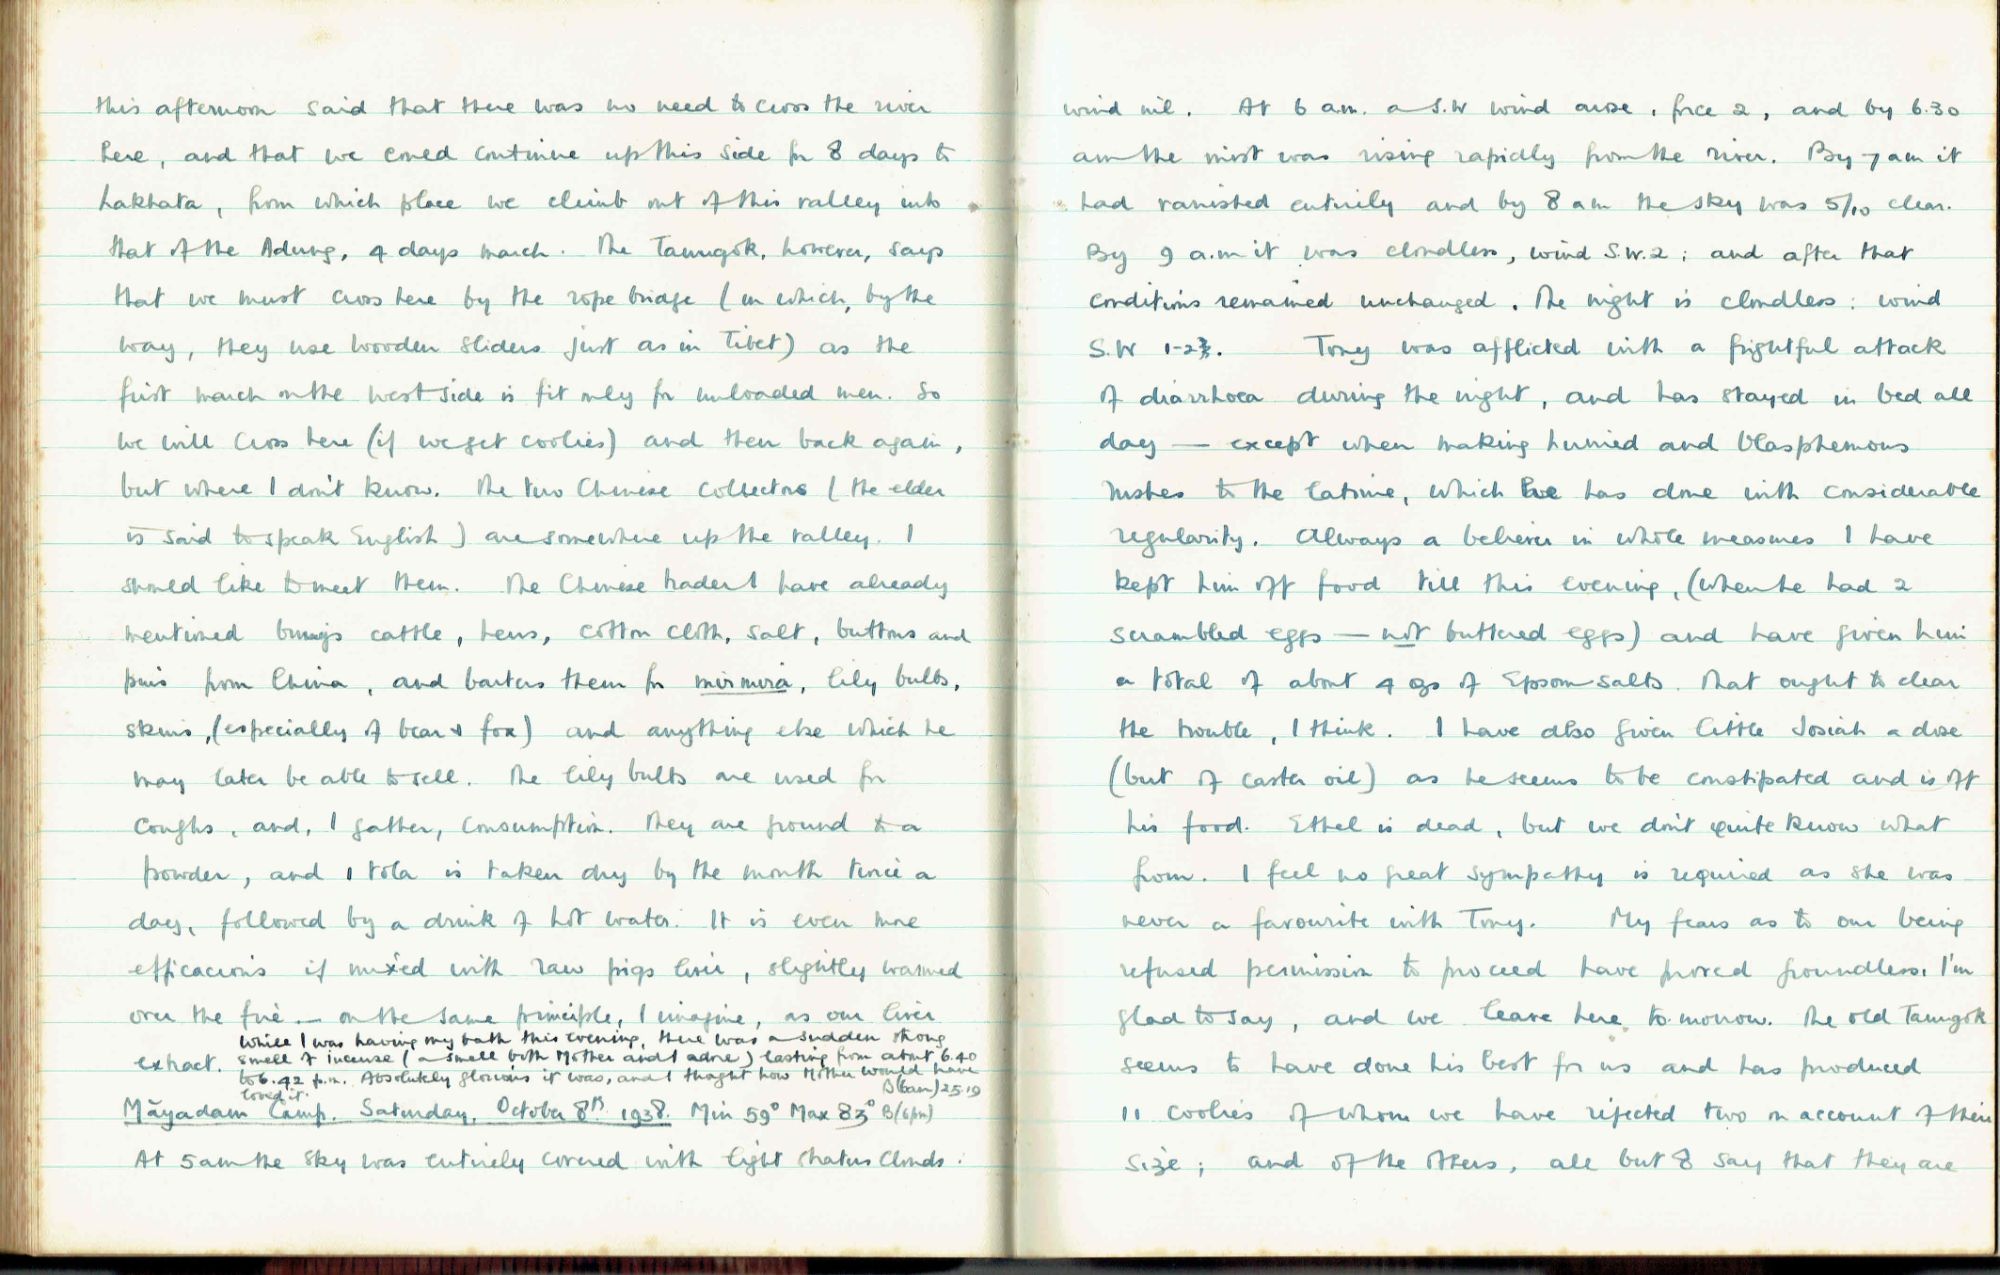 this afternoon said that there was no need to cross the river
here, and that we could continue up this side for 8 days to
Lakhata, from which place we climb out of this valley into
that of the Adung, 4 days march. The Taungok, however, says
that we must cross here by the rope bridge (on which, by the
way, they use wooden sliders just as in Tibet) as the
first march on the west side is fit only for unloaded men. So
we will cross here (if we get coolies) and then back again,
but where I don't know. The two Chinese collectors (the elder
is said to speak English) are somewhere up the valley. I
should like to meet them. The Chinese trader I have already
mentioned brings cattle, hens, cotton cloth, salt, buttons and
pins from China, and barters them for mirmira, lily bulbs,
skins, (especially of bear & fox) and anything else which he
may later be able to sell. The lily bulbs are used for
coughs, and, I gather, consumption. They are ground to a
powder, and 1 tola is taken dry by the mouth twice a
day, followed by a drink of hot water. It is even more
efficacious if mixed with raw pigs liver, slightly warmed
over the fire — on the same principle, I imagine, as our liver
extract. While I was having my bath this evening, there was a sudden strong
smell of incense (a smell both Mother and I adore) lasting from about 6.40
to 6.42 p.m. Absolutely glorious it was, and I thought how Mother would have
loved it.
B(6am) 25.19
Māyadam Camp. Saturday, October 8th 1938. Min 59° Max 83° B(6pm)
At 5 am the sky was entirely covered with light stratus clouds.
wind nil. At 6 am. a S.W wind arose, force 2, and by 6.30
am the mist was rising rapidly from the river. By 7 am it
had vanished entirely and by 8 am the sky was 5/10 clear.
By 9 a.m it was cloudless, wind S.W.2; and after that
conditions remained unchanged. The night is cloudless: wind
S.W 1-2. Tony was afflicted with a frightful attack
of diarrhoea during the night, and has stayed in bed all
day — except when making hurried and blasphemous
rushes to the latrine, which he has done with considerable
regularity. Always a believer in whole measures I have
kept him off food till this evening, (when he had 2
scrambled eggs — not buttered eggs) and have given him
a total of about 4 ozs of Epsom salts. That ought to clear
the trouble, I think. I have also given little Josiah a dose
(but of caster oil) as he seems to be constipated and is off
his food. Ethel is dead, but we don't quite know what
from. I feel no great sympathy is required as she was
never a favourite with Tony. My fears as to our being
refused permission to proceed have proved groundless, I'm
glad to say, and we leave here to-morrow. The old Taungok
seems to have done his best for us and has produced
11 coolies of whom we have rejected two on account of their
size; and of the others, all but 8 say that they are